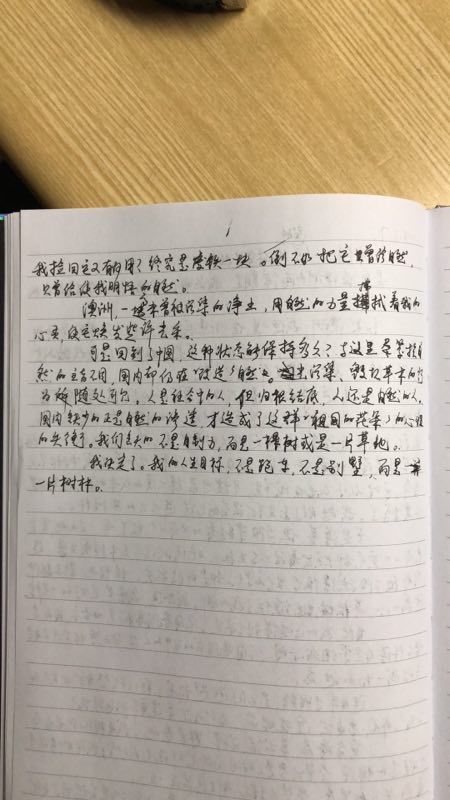 我捡回它又有何用？终究是 一块。倒不如把它赠给自然，
只曾给我明悟的自然。
澳洲，一块未曾被污染的净土，用自然的力量擦拭着我的
心灵，使它焕发些许光采。
可是回到了中国，这种状态能保持多久？与这里尽量 自
然的 不同，国内却仍在“改造”自然。污染、毁坏草木的行
为却随处可见。人是社会中的人，但归根结底，人还是自然的人。
国内缺少的正是自然的渗透，才造成了这群“祖国的花朵”的心理
的失衡。我们丢失的不是自制力，而是一棵树或是一片草地。
我决定了。我的人生目标，不是跑车，不是别墅，而是
一片树林。